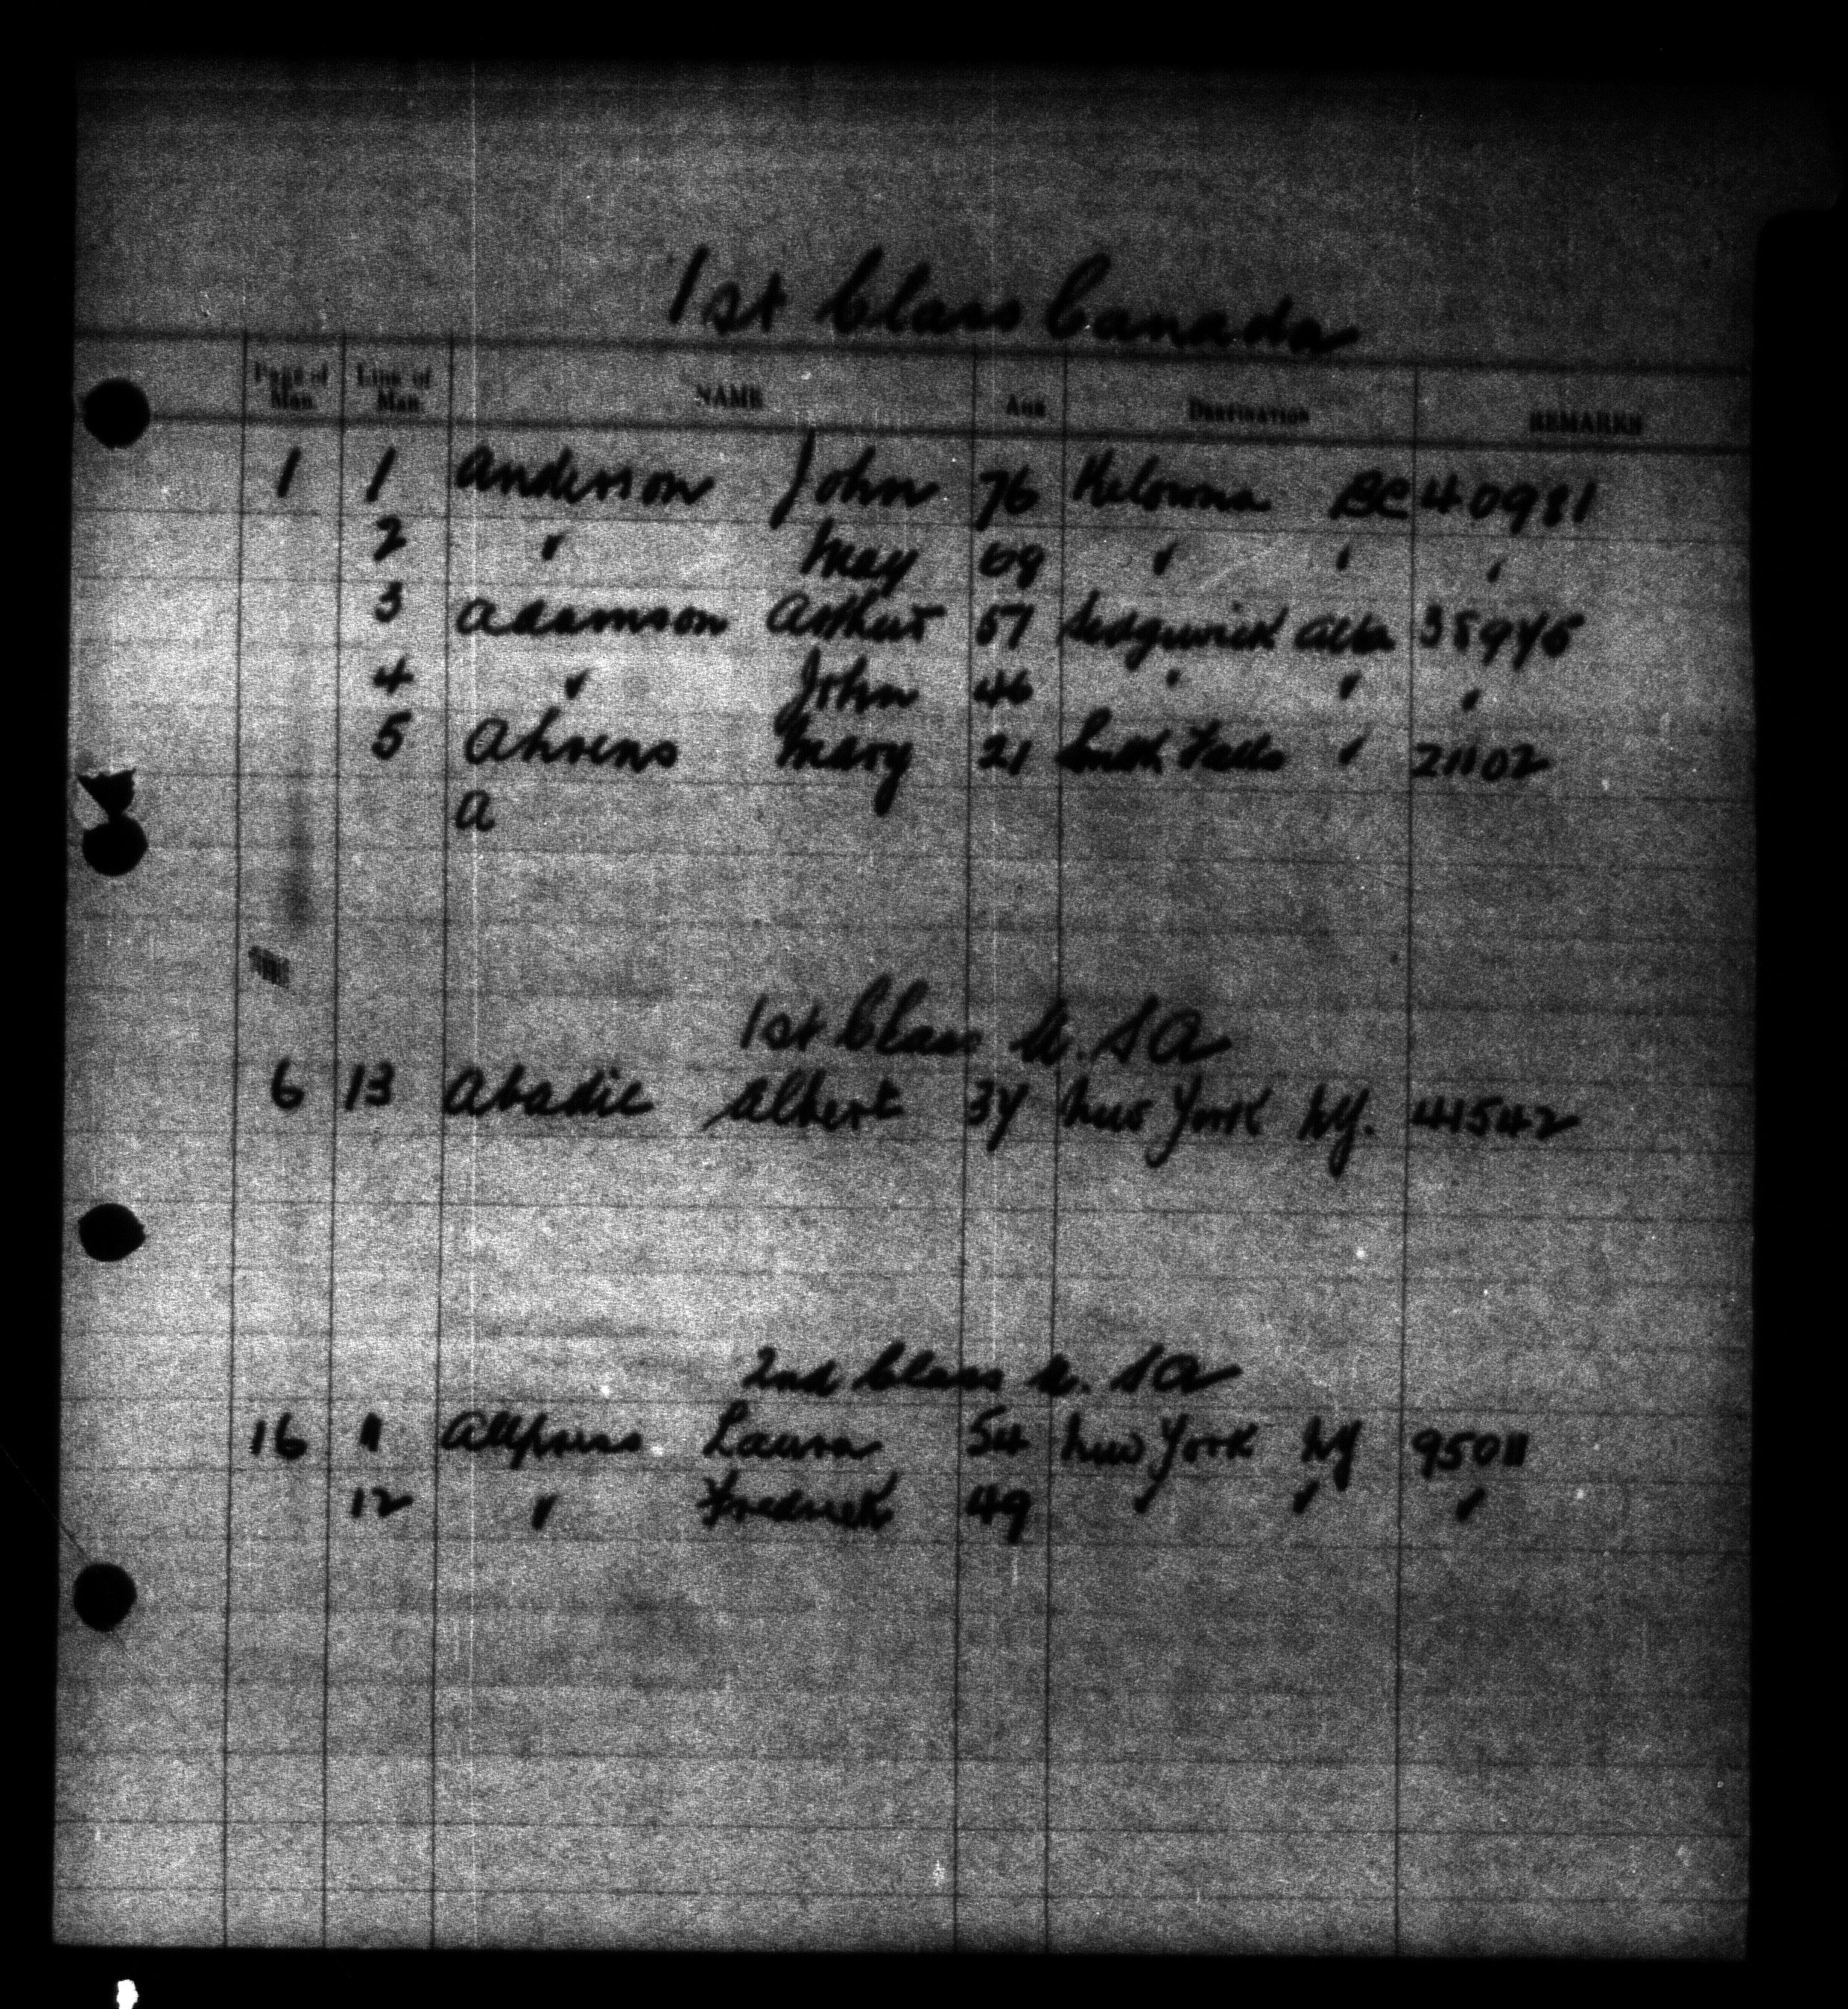 1st Class Canada
Page of Man. Line of Man. NAME AGE DESTINATION REMARKS
1 1 Anderson John 76 Kelowna BC 40981
2 " May 69 " " "
3 Adamson Arthur 57 Sedgewick Alta 38945
4 " John 46 " " "
5 Ahrens Mary 21 Smith Falls " 21102
A
1st Class U.SA
6 13 Abadie Albert 34 New York NY. 41542
2nd Class U.SA
16 11 Laura 54 New York NY 95011
12 " Frederick 49 " " "